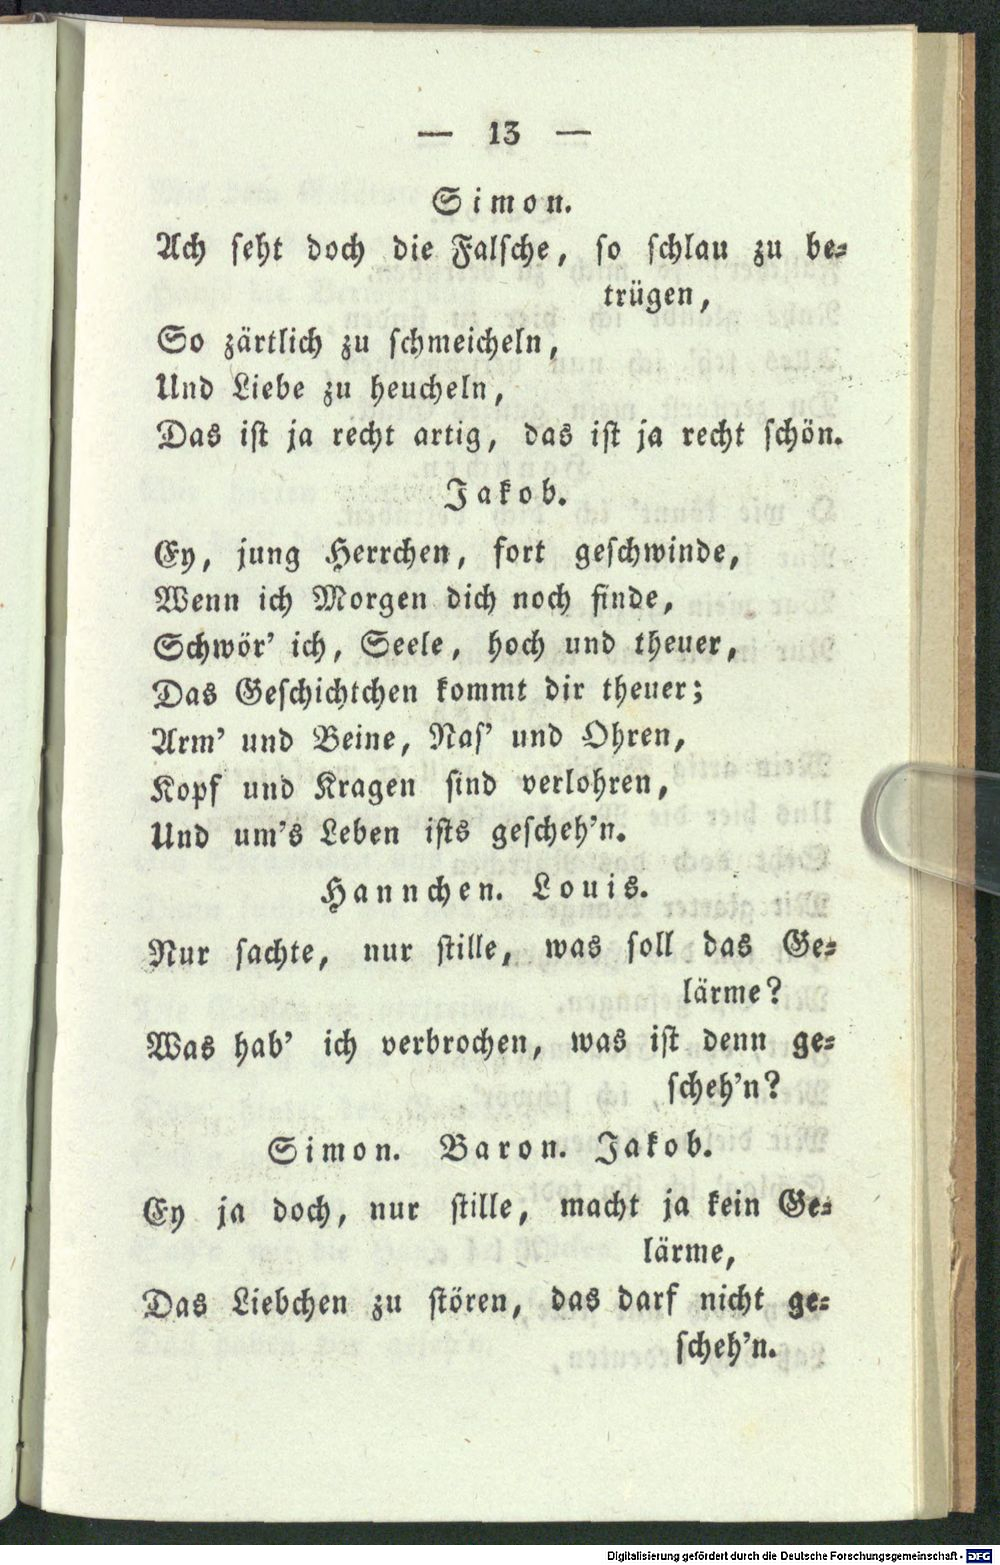 — 13 —
Simon.
Ach seht doch die Falsche, so schlau zu be-
trügen,
So zärtlich zu schmeicheln,
Und Liebe zu heucheln,
Das ist ja recht artig, das ist ja recht schön.
Jakob.
Ey, jung Herrchen, fort geschwinde,
Wenn ich Morgen dich noch finde,
Schwör' ich, Seele, hoch und theuer,
Das Geschichtchen kommt dir theuer;
Arm' und Beine, Nas' und Ohren,
Kopf und Kragen sind verlohren,
Und um's Leben ists gescheh'n.
Hannchen. Louis.
Nur sachte, nur stille, was soll das Ge-
lärme?
Was hab' ich verbrochen, was ist denn ge-
scheh'n?
Simon. Baron. Jakob.
Ey ja doch, nur stille, macht ja kein Ge-
lärme,
Das Liebchen zu stören, das darf nicht ge-
scheh'n.
Digitalisierung gefördert durch die Deutsche Forschungsgemeinschaft - DFG